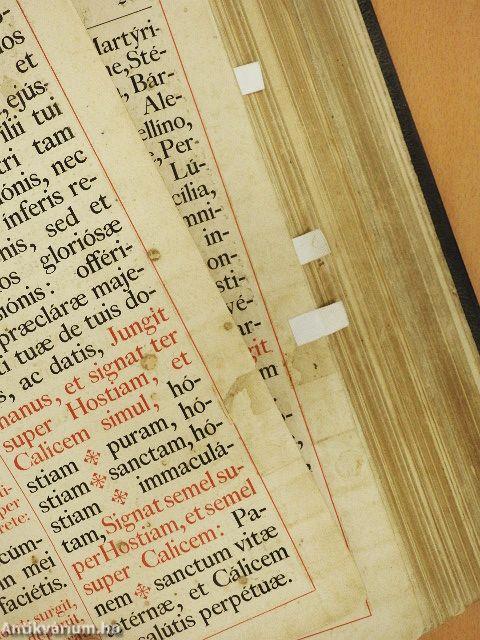 et
ejús-
ilii tui
tri tam
iónis, nec
inferis re-
nis, sed et
os gloriósæ
iónis: offéri-
præcláræ maje-
ti tuæ de tuis do-
s, ac datis, Jungit
manus, et signat ter
super Hostiam, et
Calicem simul, hó-
stiam ✠ puram, hó-
stiam ✠ sanctam, hó-
stiam ✠ immaculá-
tam, Signat semel su-
per Hostiam, et semel
super Calicem: Pa-
nem ✠ sanctum vitæ
ætérnæ, et Cálicem
salútis perpétuæ.
rete:
cúm-
n mei
faciétis.
surgit,
Martýri-
ne, Sté-
, Bár-
Ale-
ellino,
e, Per-
Lú-
cília,
mni-
in-
on-
sti-
vé-
ur-
git
m
Antikvarium.hu